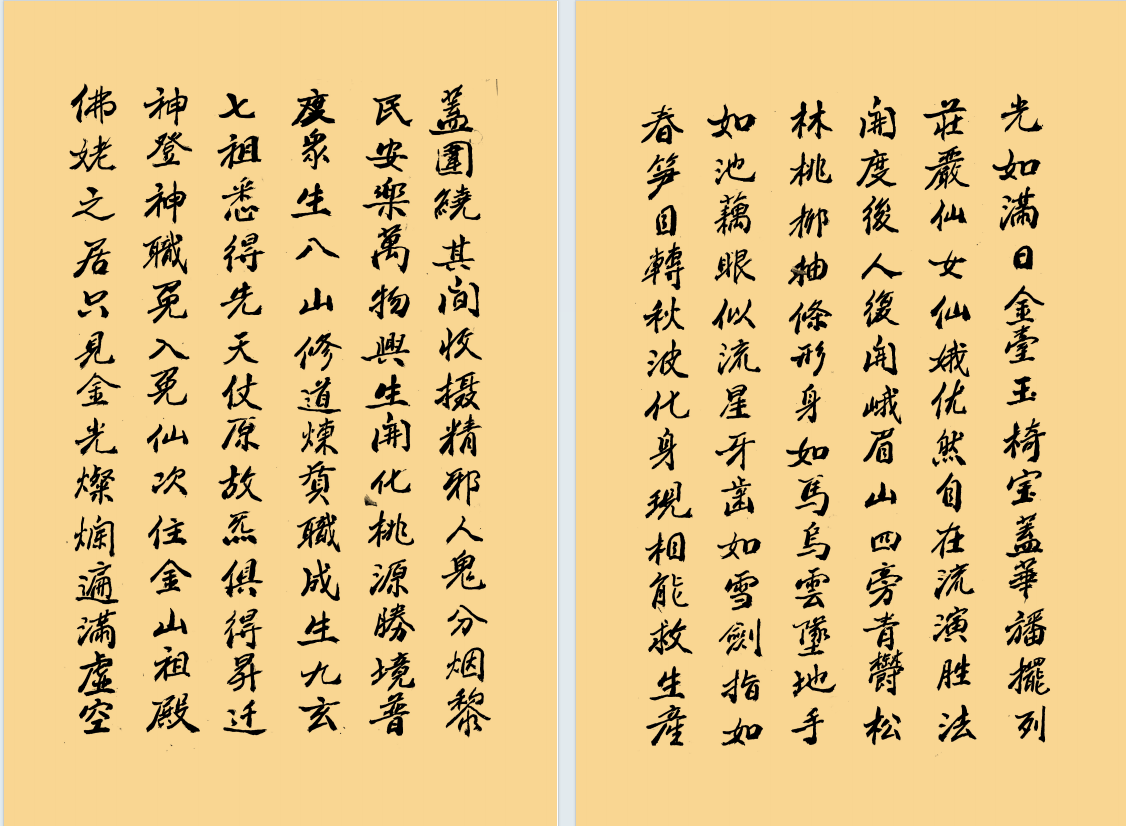 光如滿日金臺玉椅宝蓋華旛擺列
莊嚴仙女仙娥优然自在流演胜法
開度後人復開峨眉山四旁青欝松
林桃挪抽條形身如馬烏雲墜地手
如池藕眼似流星牙齒如雪劍指如
春笋目轉秋波化身現相能救生產
蓋圍繞其间收摄精邪人鬼分烟黎
民安樂萬物興生開化桃源勝境普
度衆生八山修道煉貭職成生九玄
七祖悉得先天仗原故炁俱得昇迁
神登神職免入冤仙次住金山祖殿
佛姥之居只見金光燦爛遍滿虛空